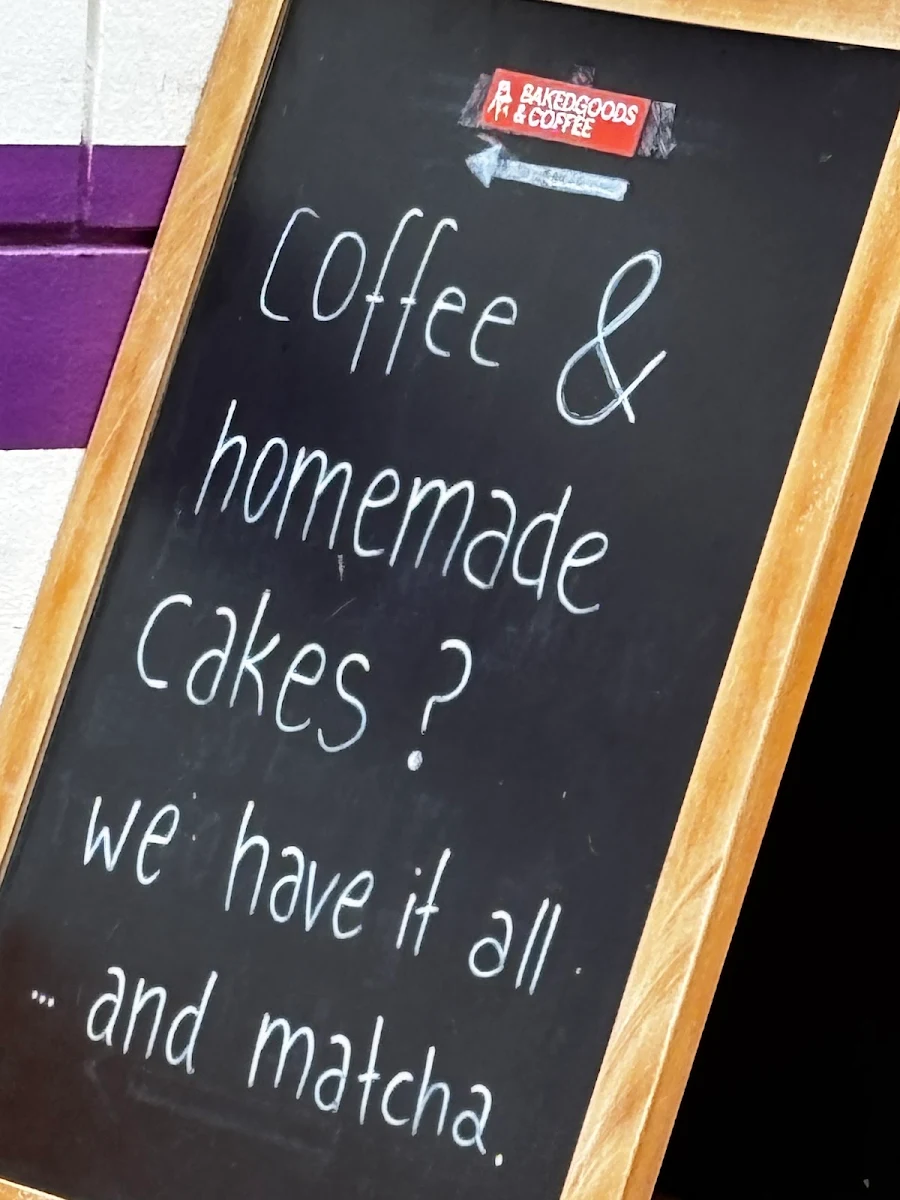 BAKEDGOODS
& COFFEE
Coffee &
homemade
cakes ?
we have it all
... and matcha.